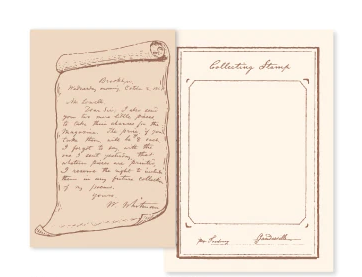 Brooklyn
Wednesday morning, October 2,
Mr. Lowell.
Dear Sir, I also send
you two more little pieces
to take their chances for the
Magazine. The price of
them will be $
I forgot to say with the
one I sent yesterday, that
whatever pieces are printed,
I reserve the right to include
them in any future collection
of my poems.
yours.
W. Whitman
Collecting Stamp